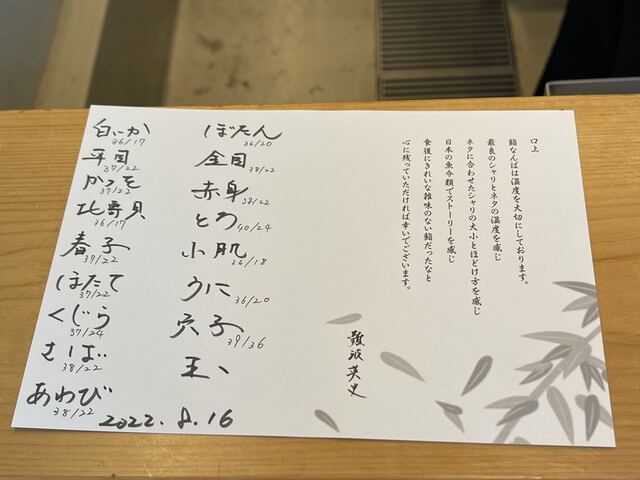 白いか
36/17
平目
37/22
かつを
37/22
北寄貝
36/17
春子
37/22
ほたて
37/22
くじら
37/24
さば
38/22
あわび
38/22
ぼたん
36/20
金目
38/22
赤身
38/22
とろ
40/24
小肌
36/18
うに
36/20
穴子
39/36
玉
2022.8.16
口上
鮨なんばは温度を大切にしております。
最良のシャリとネタの温度を感じ
ネタに合わせたシャリの大小とほどけ方を感じ
日本の魚介類でストーリーを感じ
食後にきれいな雑味のない鮨だったなと
心に残っていただければ幸いでございます。
難波英史